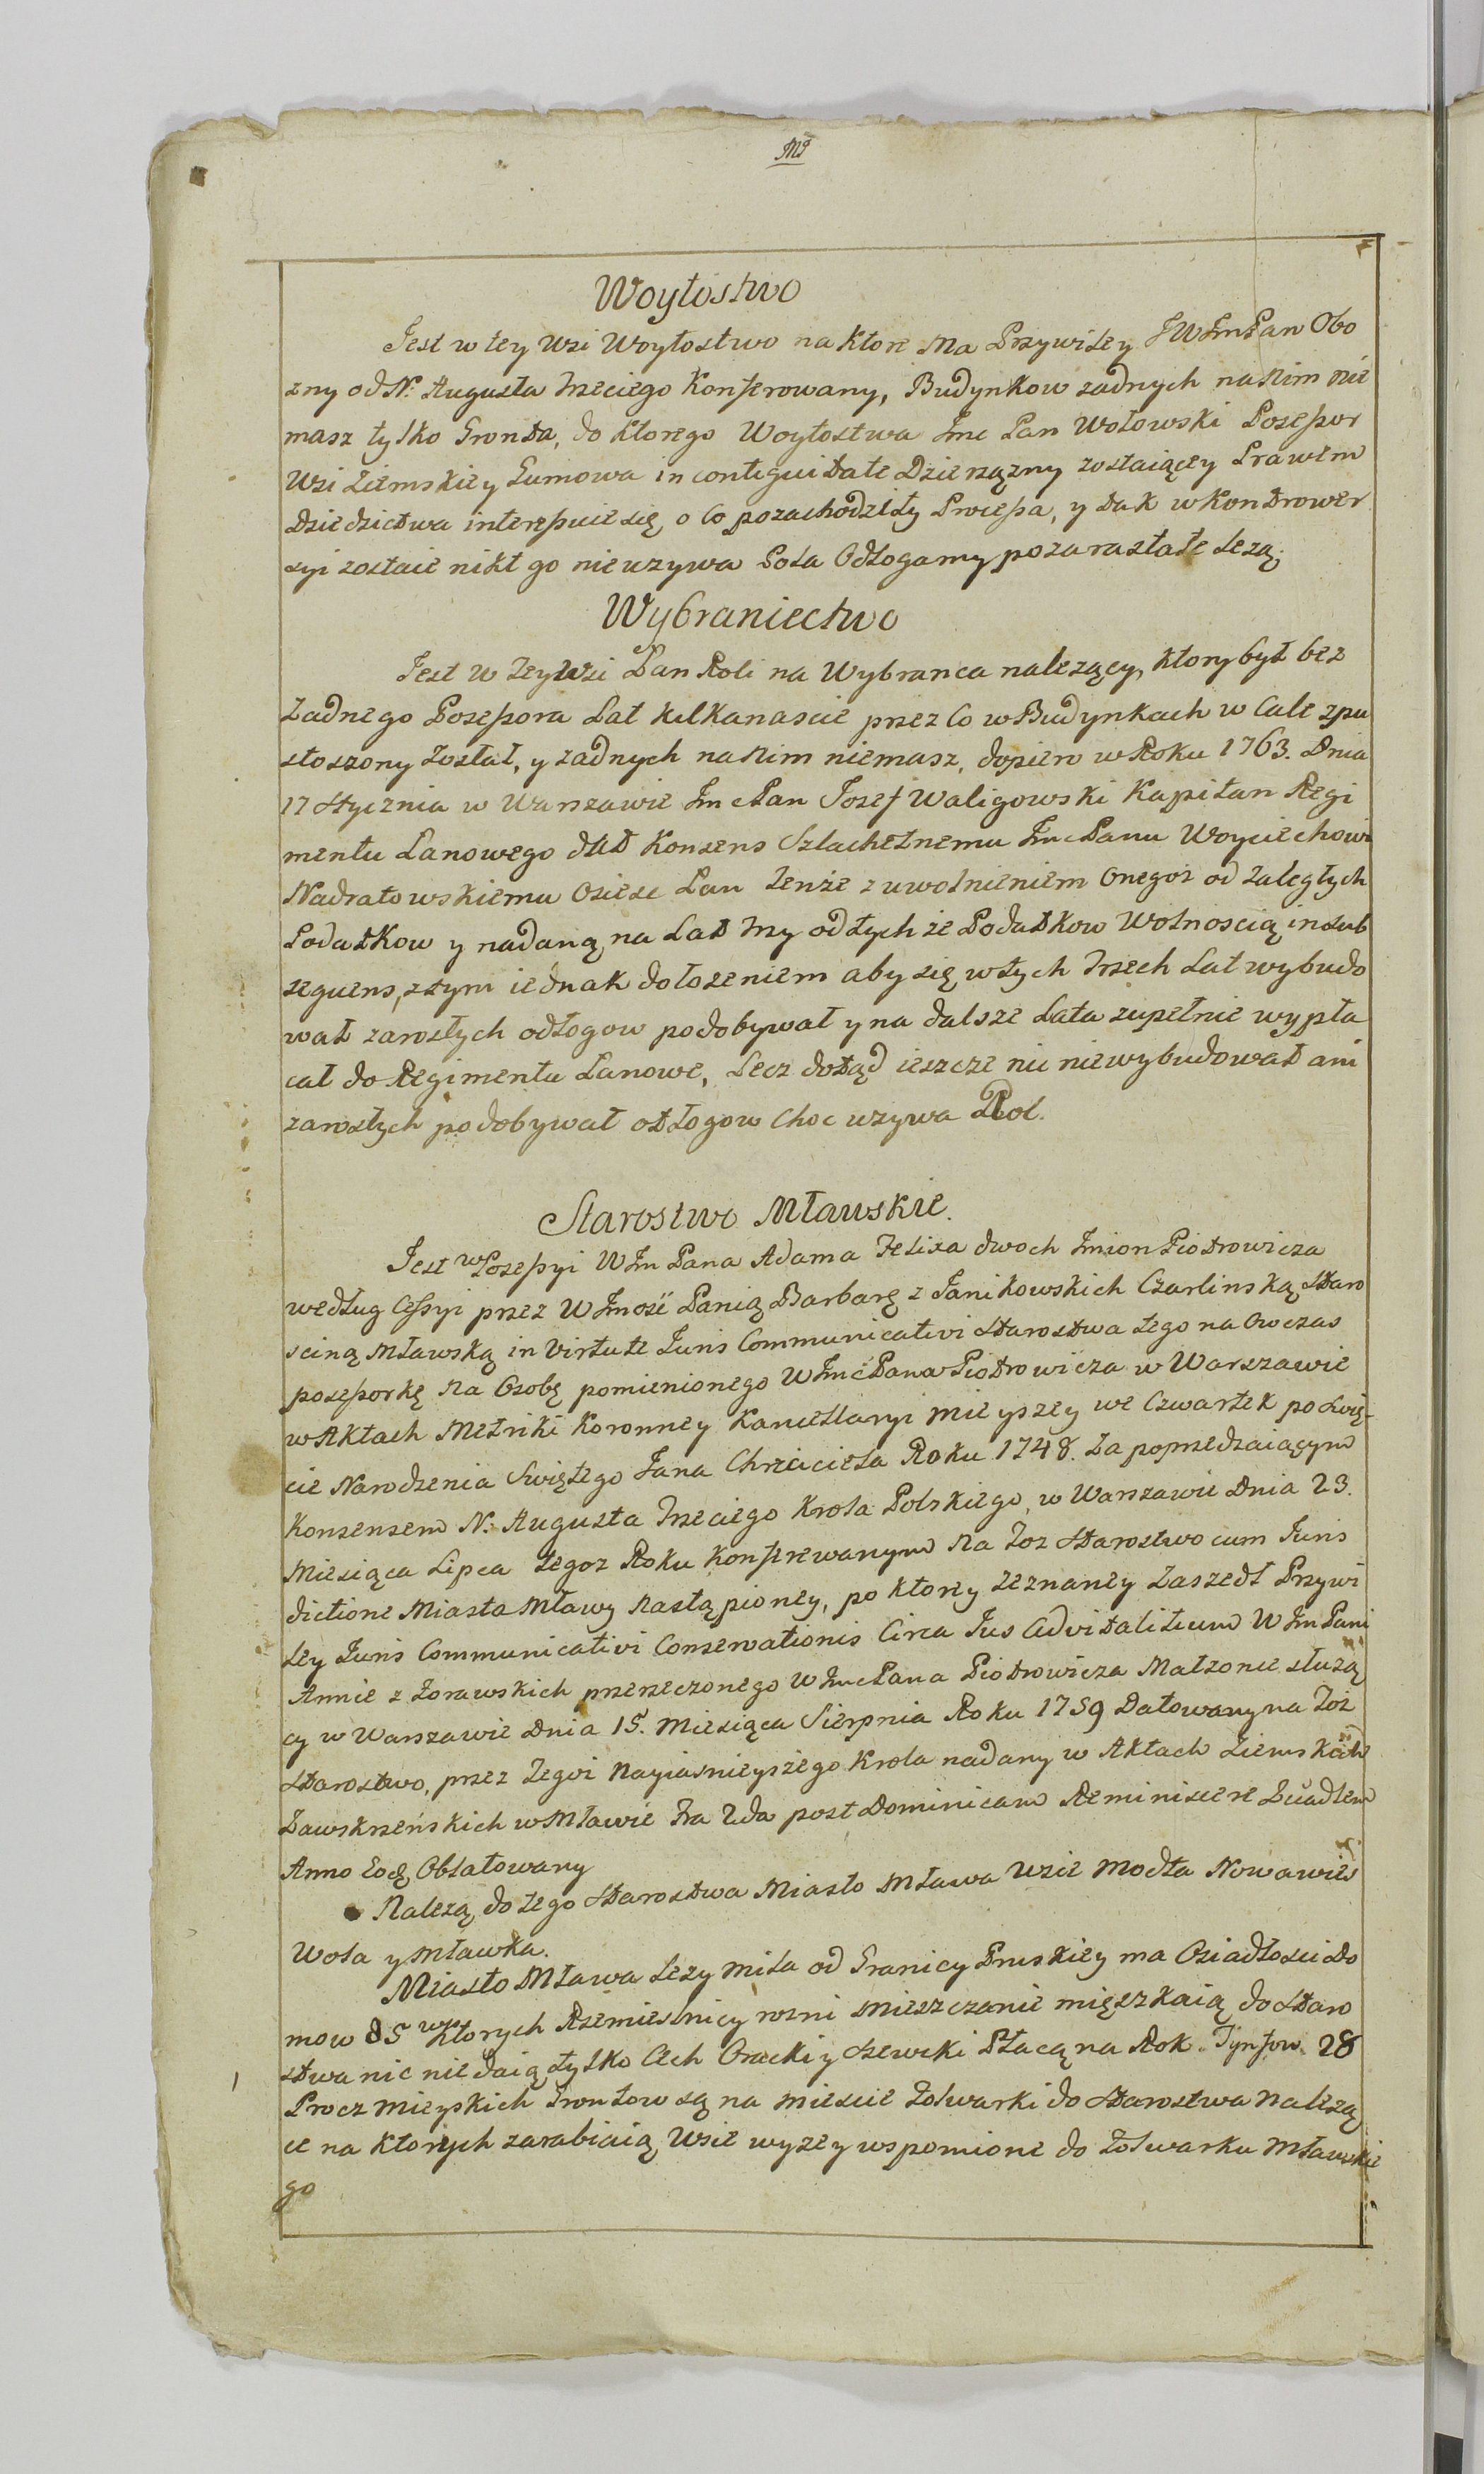 M
Woytostwo
Jest w tey Wsi Woytostwo na ktore Ma Przywiley JWJmPan Obo
zny od N. Augusta Trzeciego Konferowany, Budynkow zadnych na nim nie
masz tylko Gronta, do ktorego Woytostwa Jmc Pan Wołowski Possessor
Wsi Ziemskiey Gumowa in contiguitate Dzierzązny zostaiącey Prawem
Dziedzictwa interessuie się, o co pozachodziły Processa, y tak w Kontrower
syi zostaie nikt go nie uzywa Pola Odłogamy pozarastałe lezą.
Wybraniectwo
Jest w Tey Wsi Łan Roli na Wybranca nalezący, ktory był bez
Zadnego Possessora Lat kilkanascie przez Co w Budynkach w Cale zpu
stoszony został, y zadnych na nim niemasz, dopiero w Roku 1763. Dnia
17 Stycznia w Warszawie Jmc Pan Josef Waligowski Kapitan Regi
mentu Łanowego dał Konsens Szlachetnemu Jmc Panu Woyciechowi
Nadratowskiemu Osiesc Łan Tenże z uwolnieniem Onegoż od Zaległych
Podatkow y nadaną na Lat Trzy od tych że Podatkow Wolnoscią insub
sequens, z tym iednak dołozeniem aby się w tych Trzech Lat wybudo
wał zarosłych odłogow podobywał y na dalsze Lata zupełnie wypła
cał do Regimentu Łanowe, Lecz dotąd ieszcze nic niewybudował ani
zarosłych podobywał odłogow Choc uzywa Rol.
Starostwo Mławskie.
Jest w Possessyi WJm Pana Adama Felixa dwoch Jmion Piotrowicza
według Cessyi przez WJmość Panią Barbarę z Janikowskich Czarlinską Staro
sciną Mławską in Virtute Juris Communicativi Starostwa tego na Owczas
possessorkę Na Osobę pomienionego WJmćPana Piotrowicza w Warszawie
w Aktach Metriki Koronney Kancellaryi Mieyszey we Czwartek po Swię-
cie Narodzenia Swiętego Jana Chrzciciela Roku 1748. Za poprzedzaiącym
Konsensem N. Augusta Trzeciego Krola Polskiego, w Warszawie Dnia 23.
Miesiąca Lipca tegoz Roku Konferowanym Na Toz Starostwo cum Juris
dictione Miasta Mławy Nastąpioney, po ktorey zeznaney Zaszedł Przywi
ley Juris Communicativi Conservationis Circa Jus Advitalitium WJm Pani
Annie z Zorawskich przerzeczonego WJmcPana Piotrowicza Małzonce służą
cy w Warszawie Dnia 15. Miesiąca Sierpnia Roku 1759 Datowany na Toż
Starostwo, przez Tegoż Nayiasnieyszego Krola nadany w Aktach Ziemskich
Zawskrzeńskich w Mławie Fra 2da post Dominicam Reminiscere
Anno Eodę Oblatowany
Nalezą do tego Starostwa Miasto Mława Wsie Modła Nowawies
Wola y Mławka.
Miasto Mława lezy mila od Granicy Pruskiey ma Osiadłosci Do
mow 85 w ktorych Rzemieslnicy rozni Mieszczanie mięszkaią do Staro
stwa nic nie daią tylko Cech Oracki y Szewcki Płacą na Rok Tynfow 28
Procz Mieyskich Grontow są na Miescie Folwarki do Starostwa Nalezą
ce na ktorych zarabiaią Wsie wyzey wspomione do Folwarku Mławskie
go